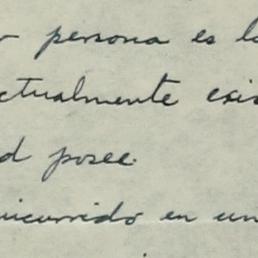 persona es l
ctualmente exis
d posee.
ncurrido en un